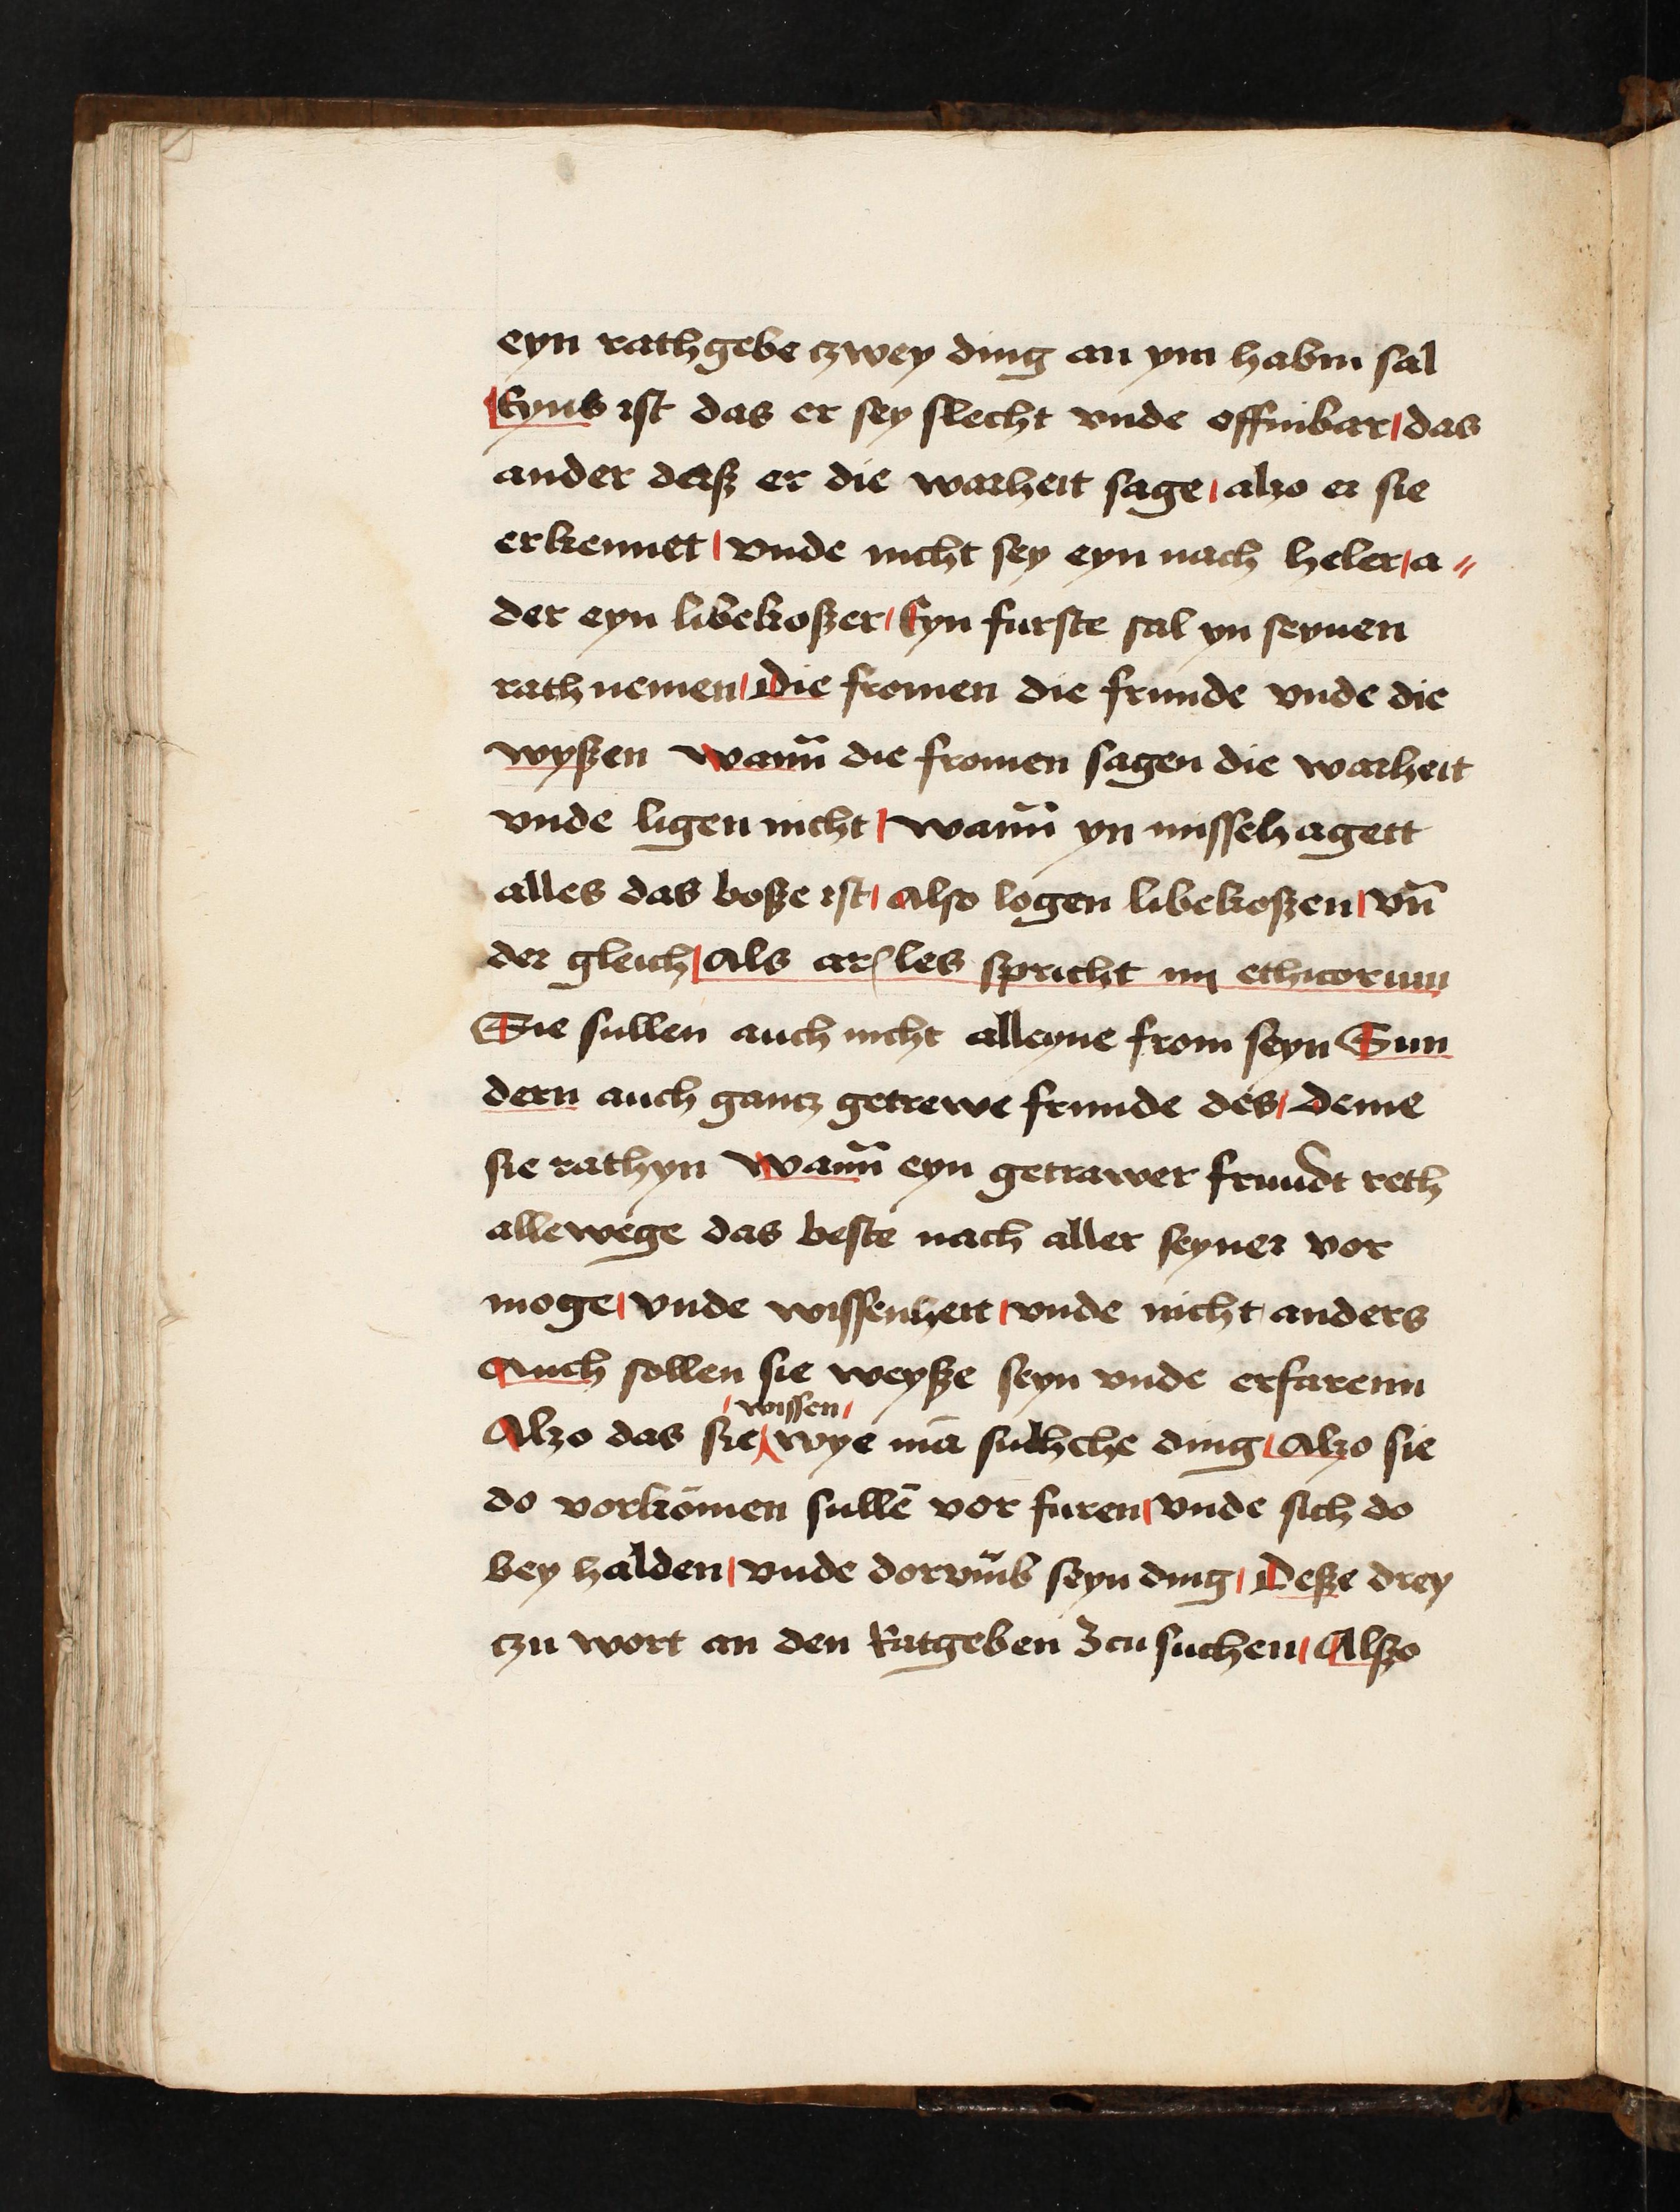 eyn rathgebe czwey ding an ym habm sal
Eyns ist das er sey slecht vnde offinbar / das
ander daß er die warheit sage / alzo er sie
erkennet / vnde nicht sey eyn nach heler / a//
der eyn libekoßer / Eyn furste sal yn seynen
rath nemen / Die fromen die frunde vnde die
wyßen Wann̄ die fromen sagen die warheit
vnde ligen nicht / wann̄ yn missehagett
alles das boße ist / Also logen libekoßen / vn̄
der gleich / Als ar(les spricht iiij ethicorum
Sie sullen auch nicht alleyne from seyn Sun
dern auch gancz getrewe frunde des / deme
sie rathyn Wann̄ eyn getrawer frundt reth
allewege das beste nach aller seyner vor
moge / vnde wissenheit / vnde nicht anders
Auch sollen sie weyße seyn vnde erfarenn
/ wissen /
Alzo das sie wye mā sulche ding / Alzo sie
do vorkōmen sullē vor furen / vnde sich do
bey halden / vnde dorvm̄b seyn ding / Deße drey
czu wort an den Ratgeben Zcu suchen / Alßo